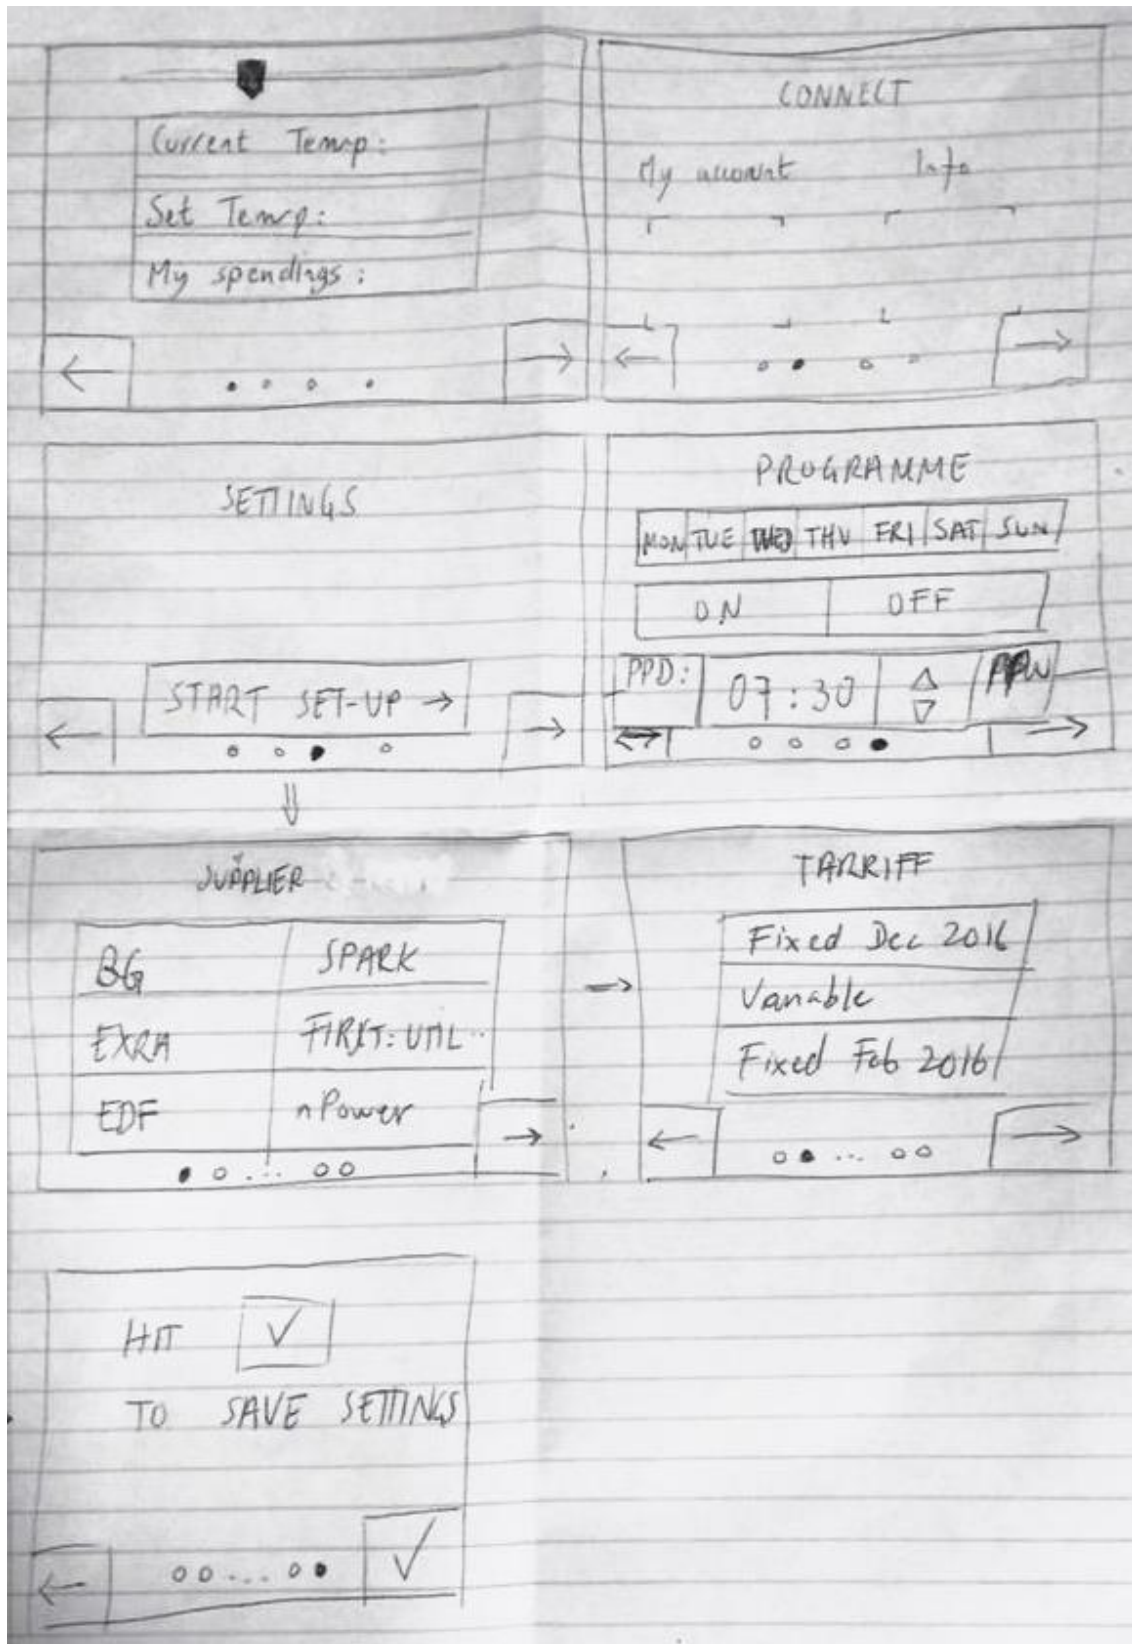 Current Temp:
Set Temp:
My spendings:
CONNECT
My account Info
SETTINGS
START SET-UP →
PROGRAMME
MON TUE WED THU FRI SAT SUN
ON OFF
PPD: 07:30 PPW
SUPPLIER
BG SPARK
EXRA FIRST:UTIL..
EDF nPower
TARRIFF
Fixed Dec 2016
Variable
Fixed Feb 2016
HIT ✓
TO SAVE SETTINGS